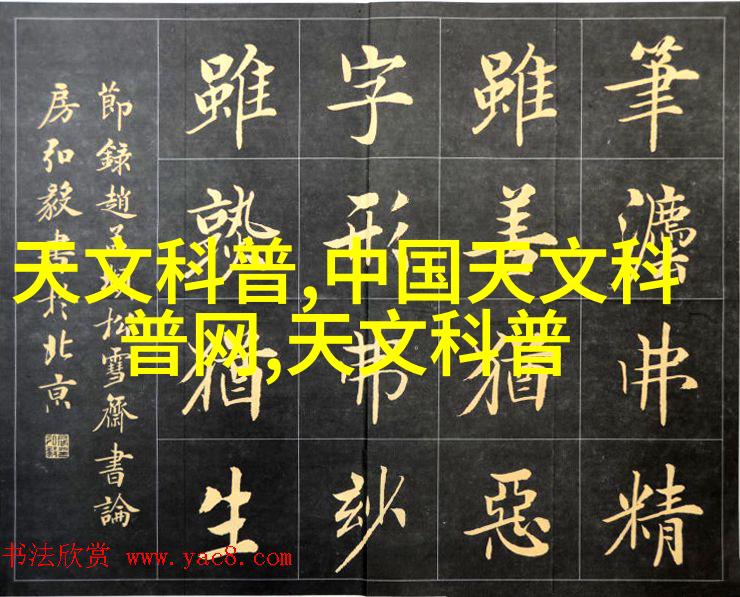 天文科普,中国天文科
普网,天文科普
筆灋弗精
雖善猶惡
字形弗玅
雖熟猶生
節錄趙孟頫松雪齋書論
房弘毅書於北京
书法欣赏 www.yac8.com